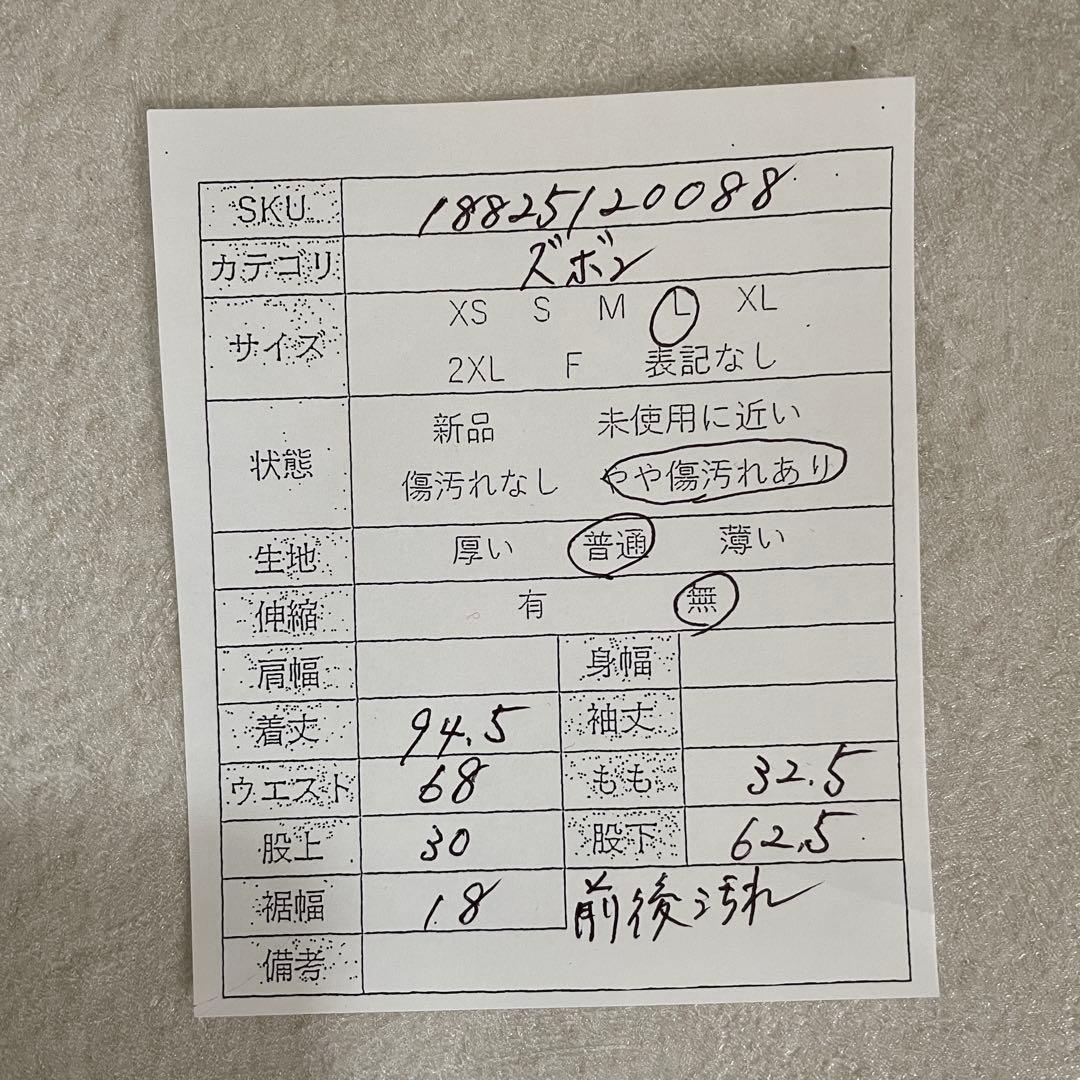 SKU 18825120088
カテゴリ ズボン
サイズ XS S M L XL
2XL F 表記なし
状態 新品 未使用に近い
傷汚れなし やや傷汚れあり
生地 厚い 普通 薄い
伸縮 有 無
肩幅 身幅
着丈 94.5 袖丈
ウエスト 68 もも 32.5
股上 30 股下 62.5
裾幅 18 前後汚れ
備考